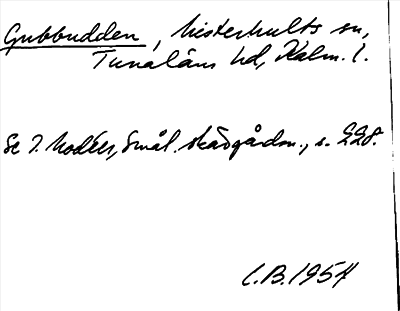 Gubbudden, Misterhults sn,
Tunaläns hd, Kalm. l.
Se I. Modéer, Smål. skärgårdsn., s. 228.
C.B. 1954